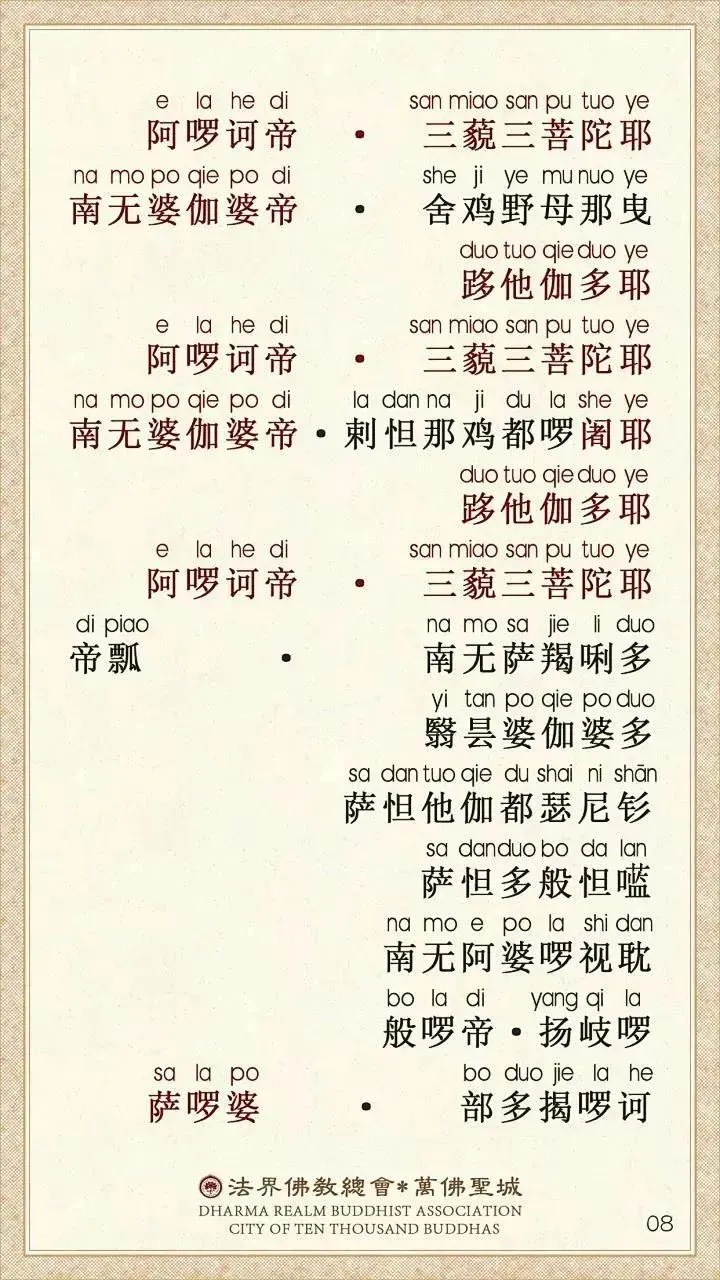 e la he di san miao san pu tuo ye
阿啰诃帝 · 三藐三菩陀耶
na mo po qie po di she ji ye mu nuo ye
南无婆伽婆帝 · 舍鸡野母那曳
duo tuo qie duo ye
跢他伽多耶
e la he di san miao san pu tuo ye
阿啰诃帝 · 三藐三菩陀耶
na mo po qie po di la dan na ji du la she ye
南无婆伽婆帝 · 剌怛那鸡都啰阇耶
duo tuo qie duo ye
跢他伽多耶
e la he di san miao san pu tuo ye
阿啰诃帝 · 三藐三菩陀耶
di piao na mo sa jie li duo
帝瓢 · 南无萨羯唎多
yi tan po qie po duo
翳昙婆伽婆多
sa dan tuo qie du shai ni shān
萨怛他伽都瑟尼钐
sa dan duo bo da lan
萨怛多般怛㘕
na mo e po la shi dan
南无阿婆啰视耽
bo la di yang qi la
般啰帝 · 扬岐啰
sa la po bo duo jie la he
萨啰婆 · 部多揭啰诃
法界佛教總會*萬佛聖城
DHARMA REALM BUDDHIST ASSOCIATION
CITY OF TEN THOUSAND BUDDHAS
08